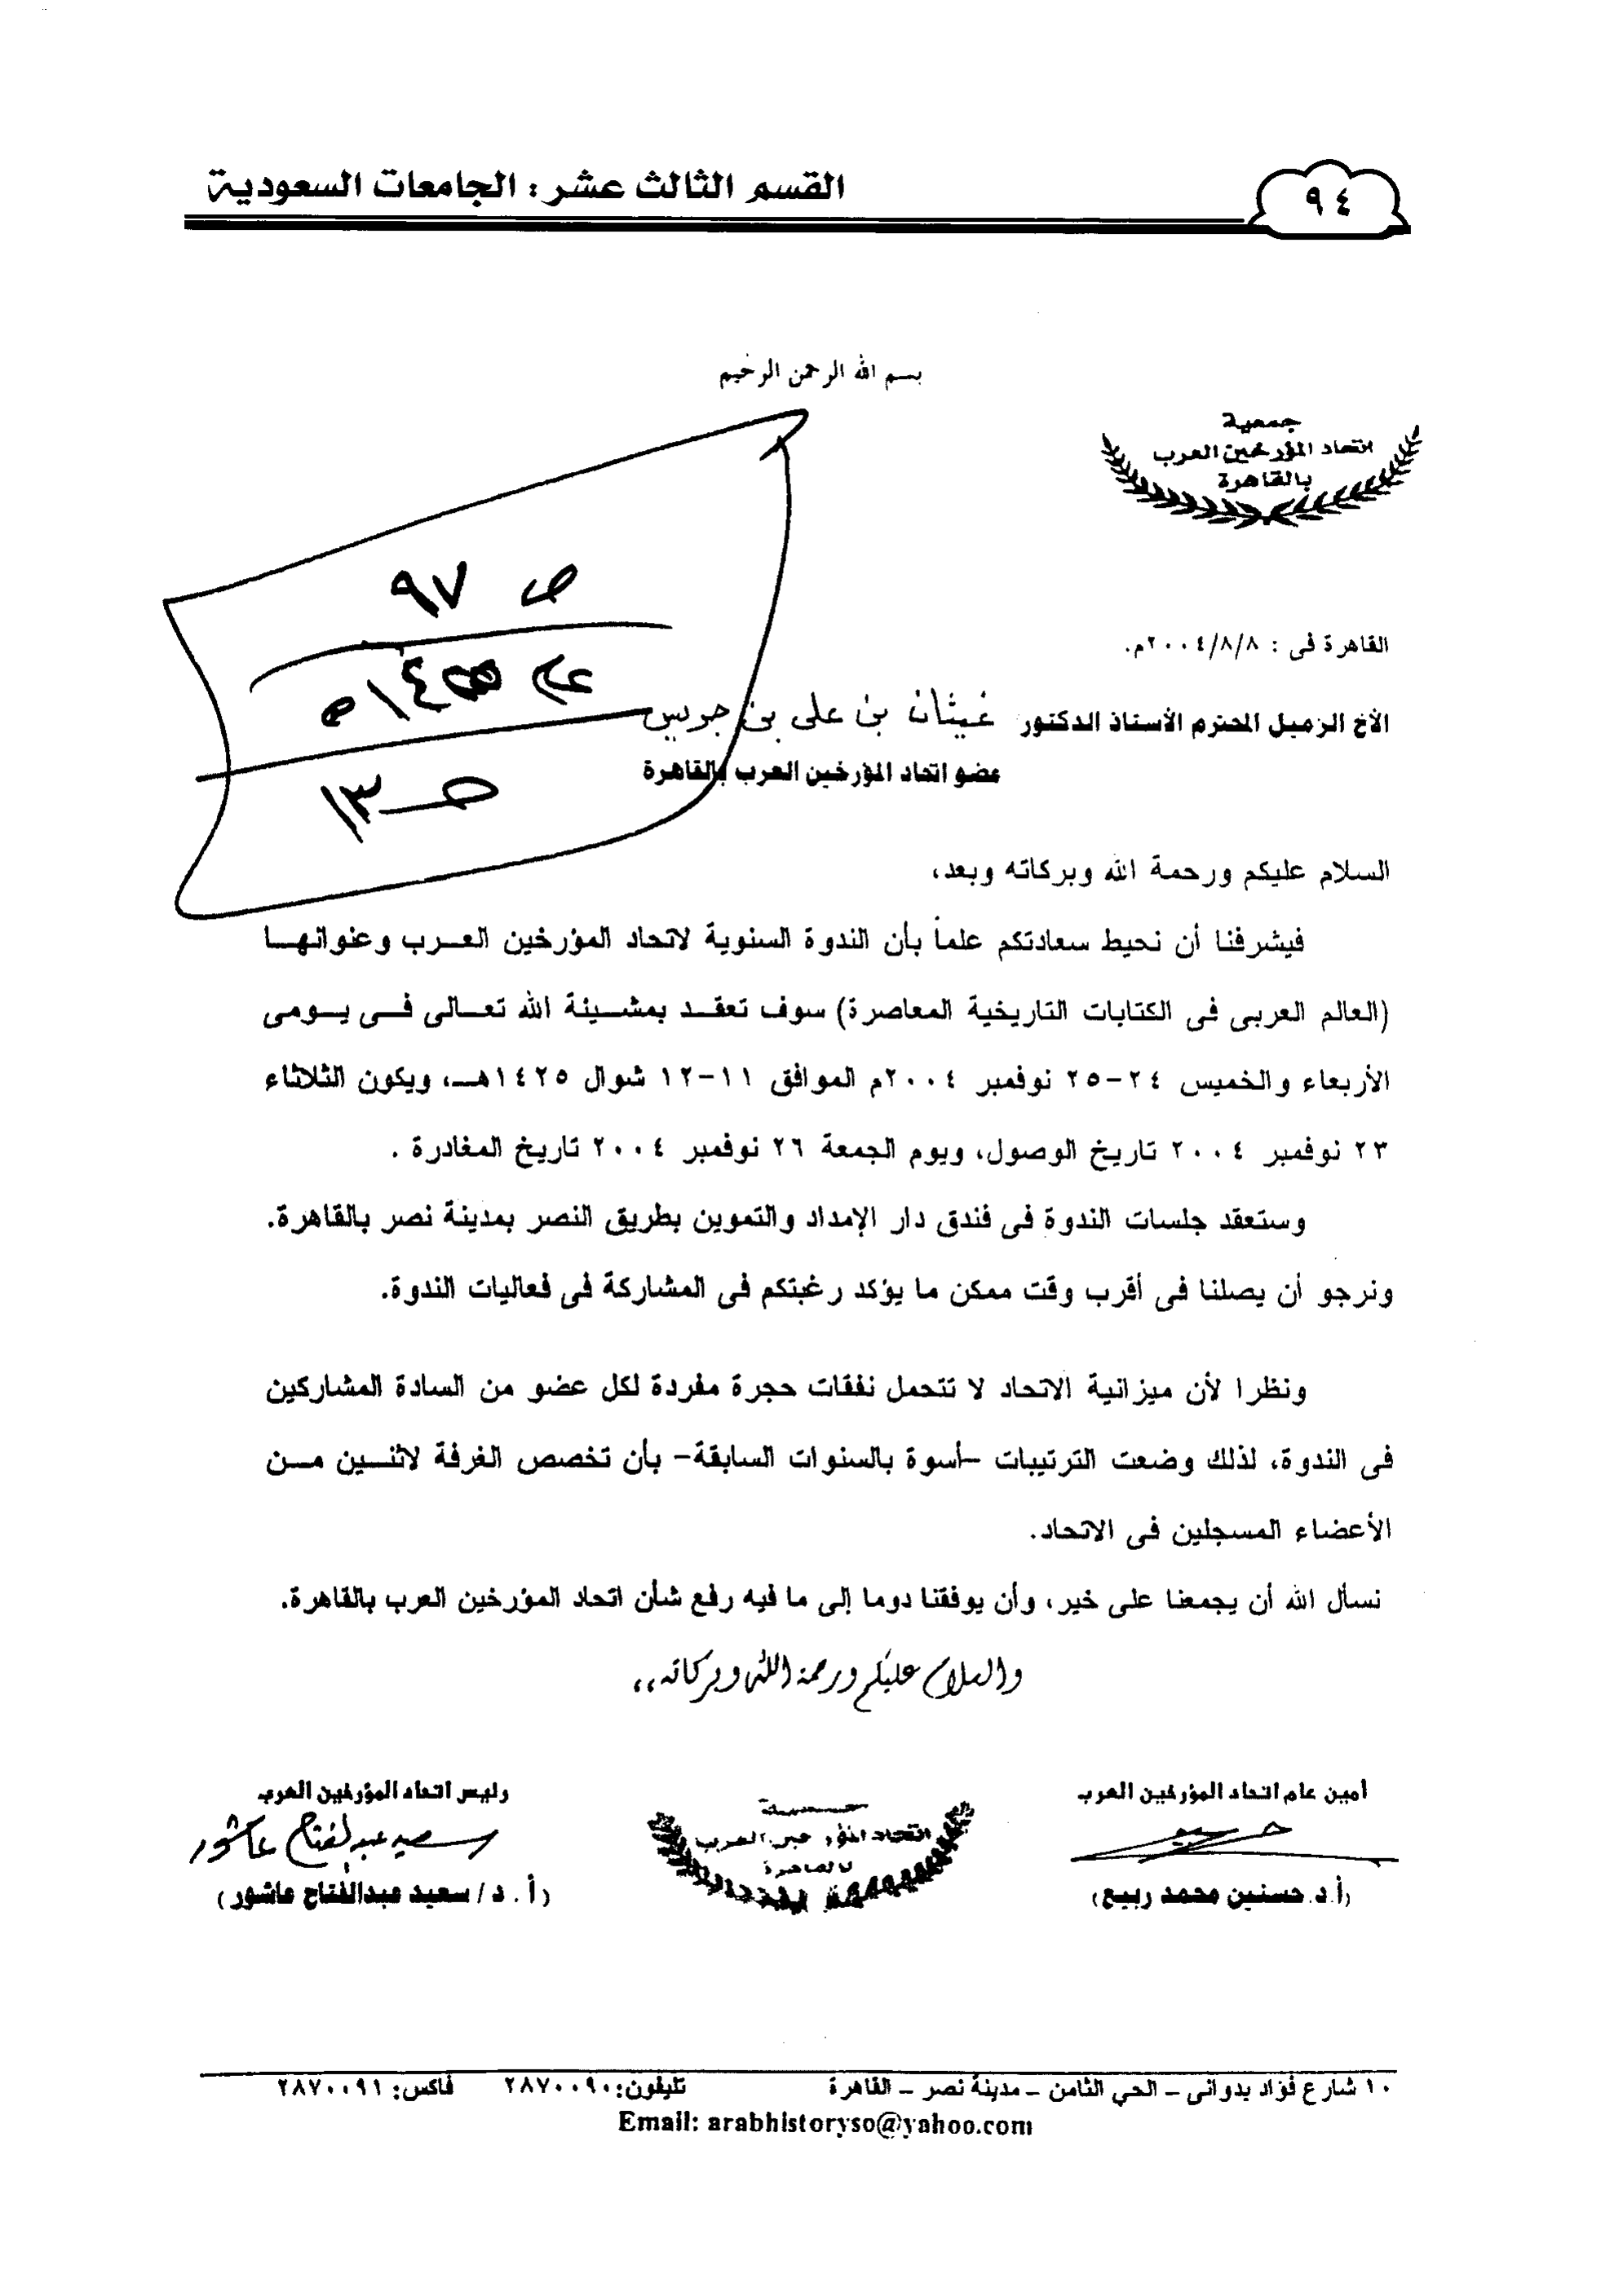 القسم الثالث عشر: الجامعات السعودية
٩٤
بسم الله الرحمن الرحيم
جمعية
اتحاد المؤرخين العرب
بالقاهرة
ص ٩٧
ص ١٣
القاهرة فى : ٢٠٠٤/٨/٨م.
الأخ الزميل المحترم الأستاذ الدكتور غيثان بن على بن جريس
عضو اتحاد المؤرخين العرب بالقاهرة
السلام عليكم ورحمة الله وبركاته وبعد،
فيشرفنا أن نحيط سعادتكم علماً بأن الندوة السنوية لاتحاد المؤرخين العرب وعنوانها
(العالم العربى فى الكتابات التاريخية المعاصرة) سوف تعقد بمشيئة الله تعالى فى يومى
الأربعاء والخميس ٢٤-٢٥ نوفمبر ٢٠٠٤م الموافق ١١-١٢ شوال ١٤٢٥هـ، ويكون الثلاثاء
٢٣ نوفمبر ٢٠٠٤ تاريخ الوصول، ويوم الجمعة ٢٦ نوفمبر ٢٠٠٤ تاريخ المغادرة .
وستعقد جلسات الندوة فى فندق دار الإمداد والتموين بطريق النصر بمدينة نصر بالقاهرة.
ونرجو أن يصلنا فى أقرب وقت ممكن ما يؤكد رغبتكم فى المشاركة فى فعاليات الندوة.
ونظرا لأن ميزانية الاتحاد لا تتحمل نفقات حجرة مفردة لكل عضو من السادة المشاركين
فى الندوة، لذلك وضعت الترتيبات -أسوة بالسنوات السابقة- بأن تخصص الغرفة لاثنين من
الأعضاء المسجلين فى الاتحاد.
نسأل الله أن يجمعنا على خير، وأن يوفقنا دوما إلى ما فيه رفع شأن اتحاد المؤرخين العرب بالقاهرة.
والسلام عليكم ورحمة الله وبركاته،،
أمين عام اتحاد المؤرخين العرب
(أ.د. حسنين محمد ربيع)
جمعية
اتحاد المؤرخين العرب
بالقاهرة
رئيس اتحاد المؤرخين العرب
سعيد عبدالفتاح عاشور
(أ . د / سعيد عبدالفتاح عاشور)
١٠ شارع فؤاد بدوانى – الحي الثامن – مدينة نصر – القاهرة تليفون: ٢٨٧٠٠٩٠ فاكس: ٢٨٧٠٠٩١
Email: arabhistoryso@yahoo.com